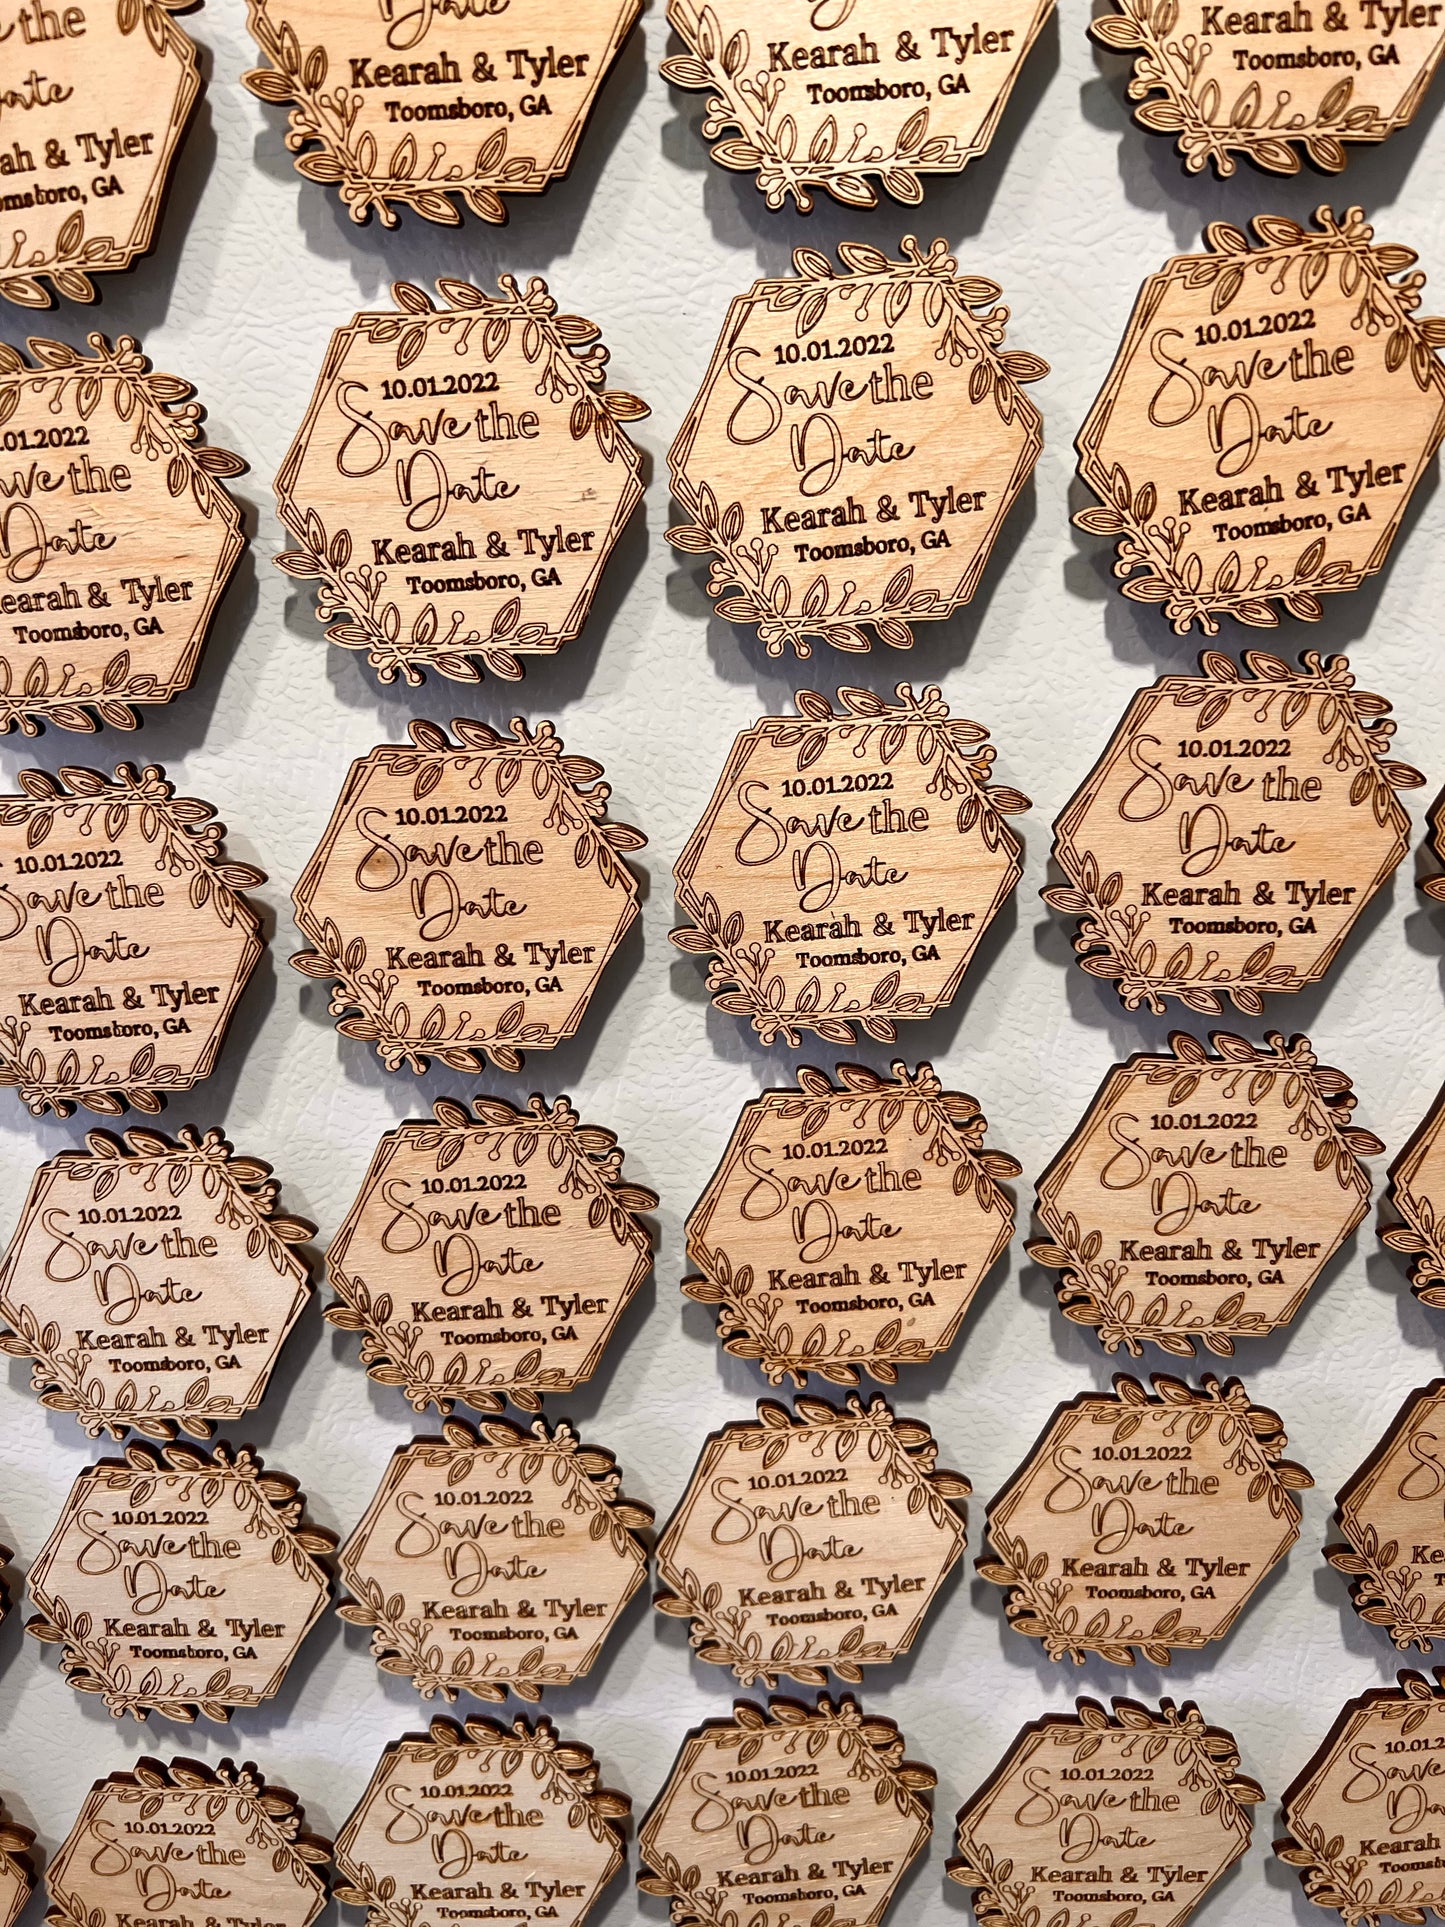 Save the
Date
Kearah & Tyler
Toomsboro, GA
Date
Kearah & Tyler
Toomsboro, GA
Date
Kearah & Tyler
Toomsboro, GA
Kearah & Tyler
Toomsboro, GA
10.01.2022
Save the
Date
Kearah & Tyler
Toomsboro, GA
10.01.2022
Save the
Date
Kearah & Tyler
Toomsboro, GA
10.01.2022
Save the
Date
Kearah & Tyler
Toomsboro, GA
10.01.2022
Save the
Date
Kearah & Tyler
Toomsboro, GA
10.01.2022
Save the
Date
Kearah & Tyler
Toomsboro, GA
10.01.2022
Save the
Date
Kearah & Tyler
Toomsboro, GA
10.01.2022
Save the
Date
Kearah & Tyler
Toomsboro, GA
10.01.2022
Save the
Date
Kearah & Tyler
Toomsboro, GA
10.01.2022
Save the
Date
Kearah & Tyler
Toomsboro, GA
10.01.2022
Save the
Date
Kearah & Tyler
Toomsboro, GA
10.01.2022
Save the
Date
Kearah & Tyler
Toomsboro, GA
10.01.2022
Save the
Date
Kearah & Tyler
Toomsboro, GA
10.01.2022
Save the
Date
Kearah & Tyler
Toomsboro, GA
10.01.2022
Save the
Date
Kearah & Tyler
Toomsboro, GA
10.01.2022
Save the
Date
Kearah & Tyler
Toomsboro, GA
10.01.2022
Save the
Date
Kearah & Tyler
Toomsboro, GA
10.01.2022
Save the
Date
Kearah & Tyler
10.01.2022
Save the
Date
Kearah & Tyler
Toomsboro, GA
10.01.2022
Save the
Date
Kearah & Tyler
Toomsboro, GA
10.01.2022
Save the
Date
Kearah & Tyler
Toomsboro, GA
Save
Kearah